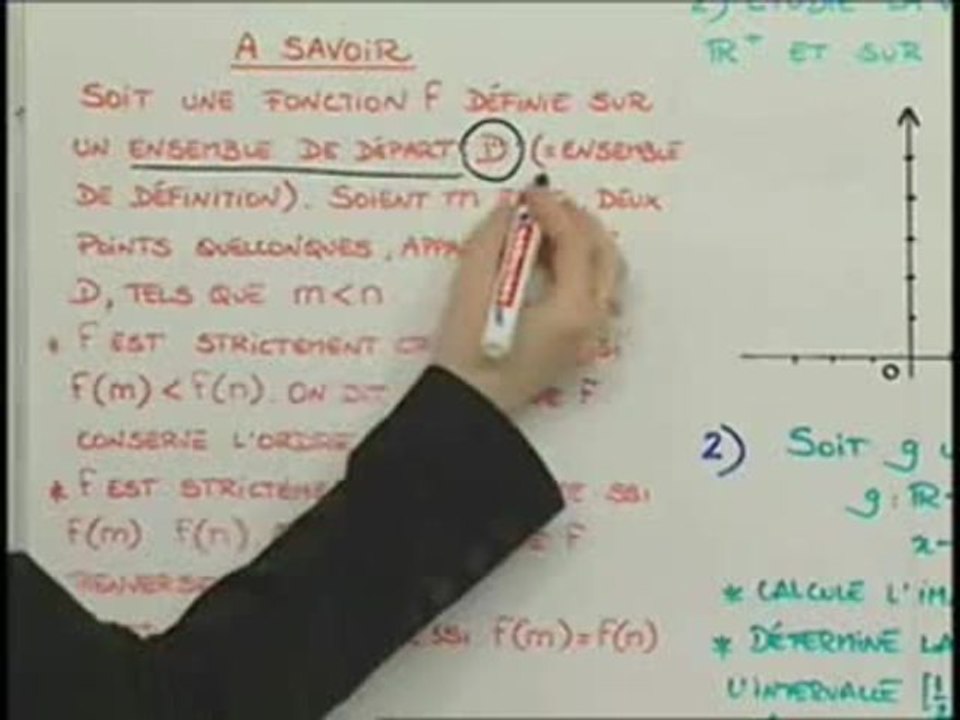 A SAVOIR
SOIT UNE FONCTION f DÉFINIE SUR
UN ENSEMBLE DE DÉPART D (= ENSEMBLE
DE DÉFINITION). SOIENT m DEUX
POINTS QUELCONQUES, APPA
D, TELS QUE m < n
* f EST STRICTEMENT SSI
f(m) < f(n). ON DIT f
CONSERVE L'ORDRE
* f EST STRICTEME SSI
f(m) f(n). f
RENVERSE
SSI f(m) = f(n)
2) ÉTUDIE LA
ℝ⁺ ET SUR
O
2) Soit g
g : ℝ
x
* CALCULE L'IM
* DÉTERMINE LA
L'INTERVALLE [1/2